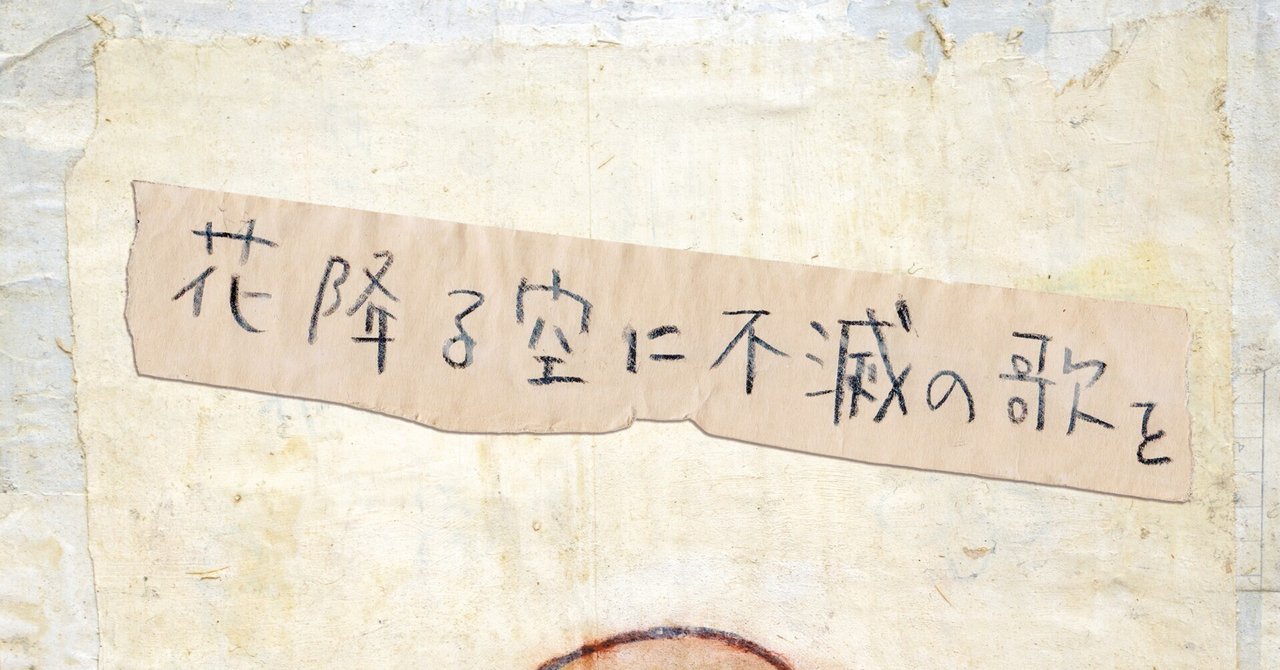 花降る空に不滅の歌を